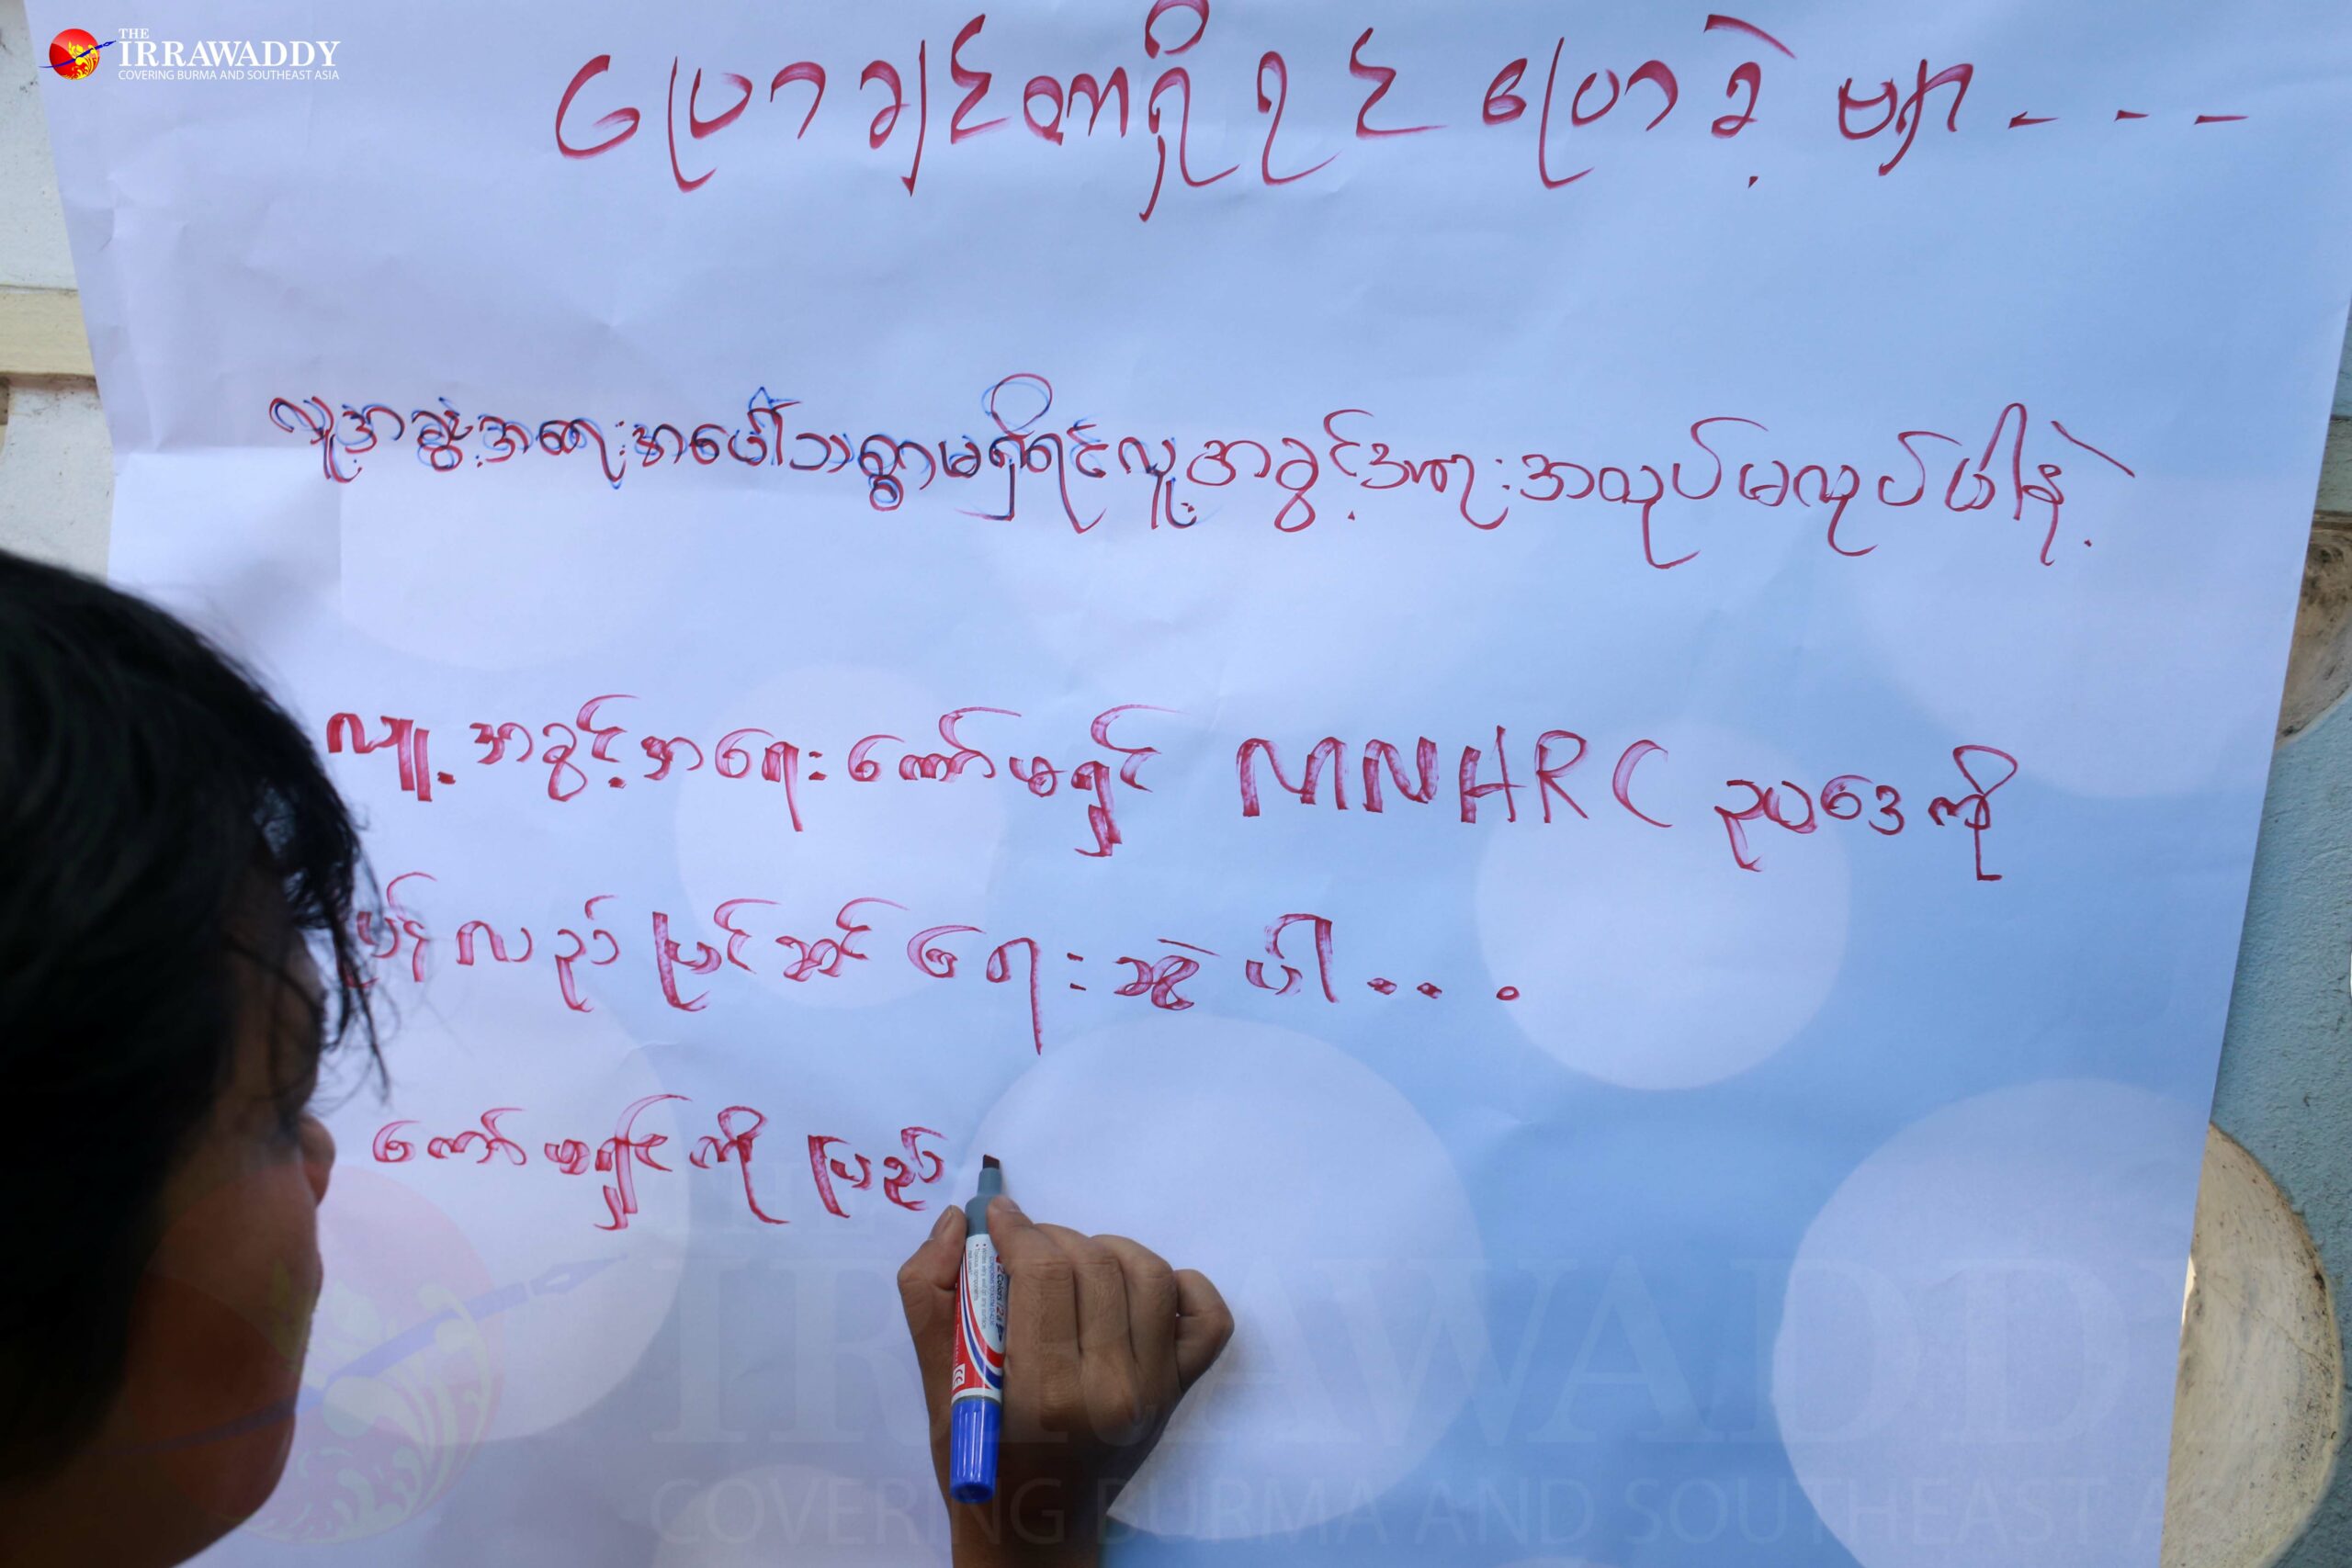 THE
IRRAWADDY
COVERING BURMA AND SOUTHEAST ASIA
ပြောချင်တာရှိရင် ပြောခဲ့ပါ - - -
လူ့အခွင့်အရေးအပေါ်သစ္စာမရှိရင်လူ့အခွင့်အရေးအလုပ်မလုပ်ပါနဲ့
လူ့အခွင့်အရေးကော်မရှင် MNHRC ဥပဒေကို
ပြန်လည်ပြင်ဆင်ရေးဆွဲပါ....
ကော်မရှင်ကို ပြည်
THE
IRRAWADDY
COVERING BURMA AND SOUTHEAST